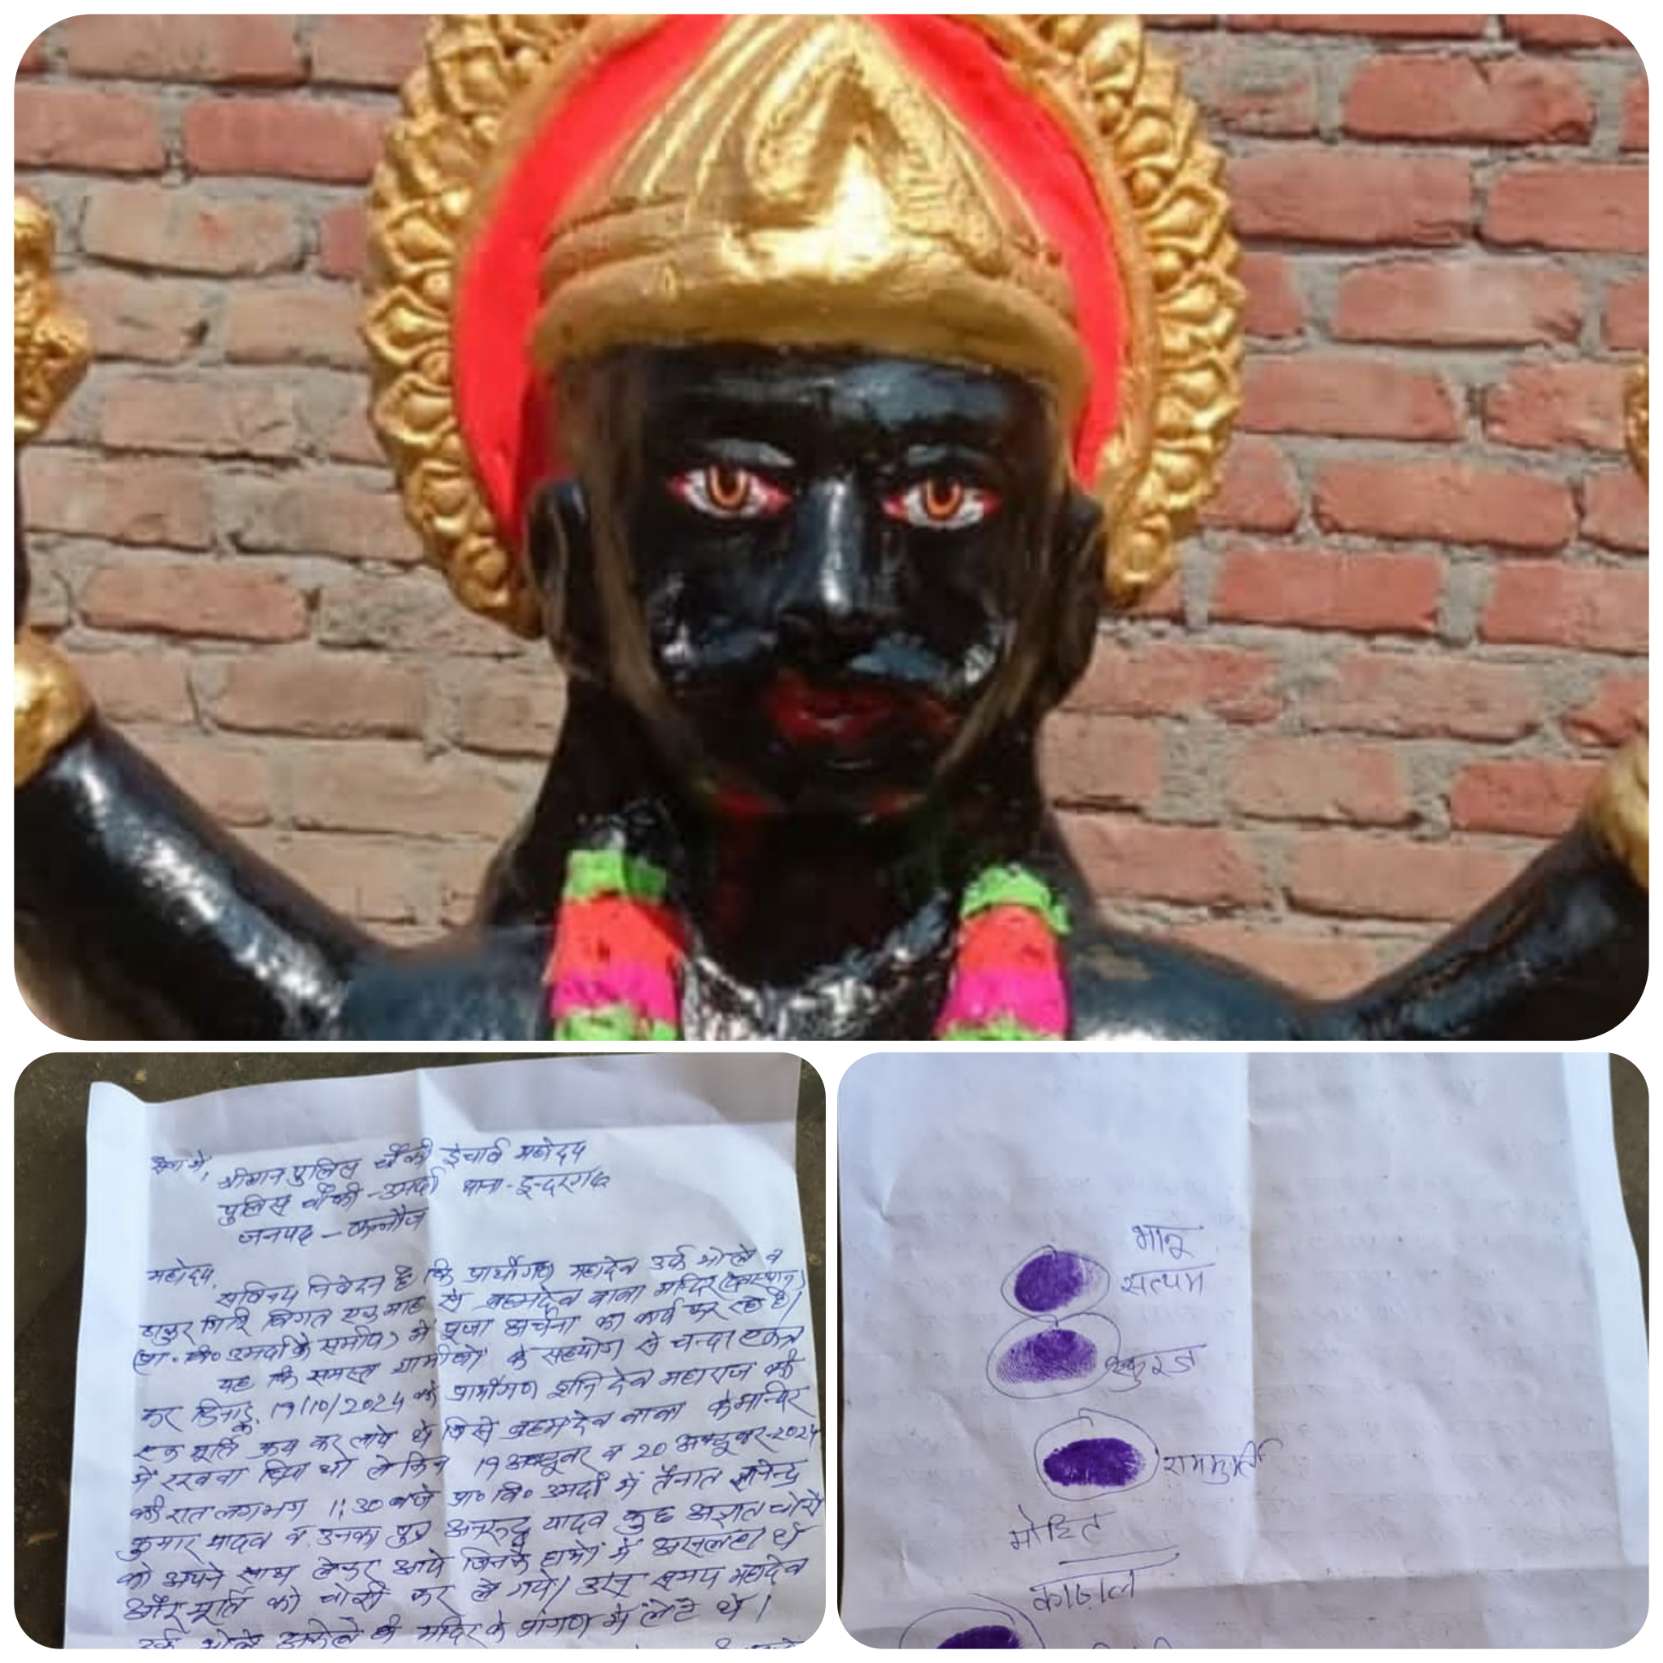 सेवा में,
श्रीमान पुलिस चौकी इंचार्ज महोदय
पुलिस चौकी - उमर्दा थाना - इन्दरगढ़
जनपद - कन्नौज
महोदय,
सविनय निवेदन है कि प्रार्थीगण महादेव उर्फ भोले व
ठाकुर गिरि विगत एक माह से ब्रह्मदेव बाबा मन्दिर (देवस्थान)
(प्रा. वि० उमर्दा के समीप) में पूजा अर्चना का कार्य कर रहे हैं।
यह कि समस्त ग्रामीणों के सहयोग से चन्दा एकत्र
कर दिनांक 19/10/2024 को प्रार्थीगण शनि देव महाराज की
एक मूर्ति क्रय कर लाये थे जिसे ब्रह्मदेव बाबा के मन्दिर
में रखवा दिया था लेकिन 19 अक्टूबर व 20 अक्टूबर-2024
की रात लगभग 1:30 बजे प्रा० वि० उमर्दा में तैनात
कुमार यादव व उनका पुत्र अनुरुद्ध यादव कुछ अज्ञात चोरों
को अपने साथ लेकर आये जिनके हाथों में असलहा थे
और मूर्ति को चोरी कर ले गये। उस समय महादेव
उर्फ भोले अकेले ही मन्दिर के प्रांगण में लेटे थे।
भानू
सत्यम
राममूर्ति
मोहित